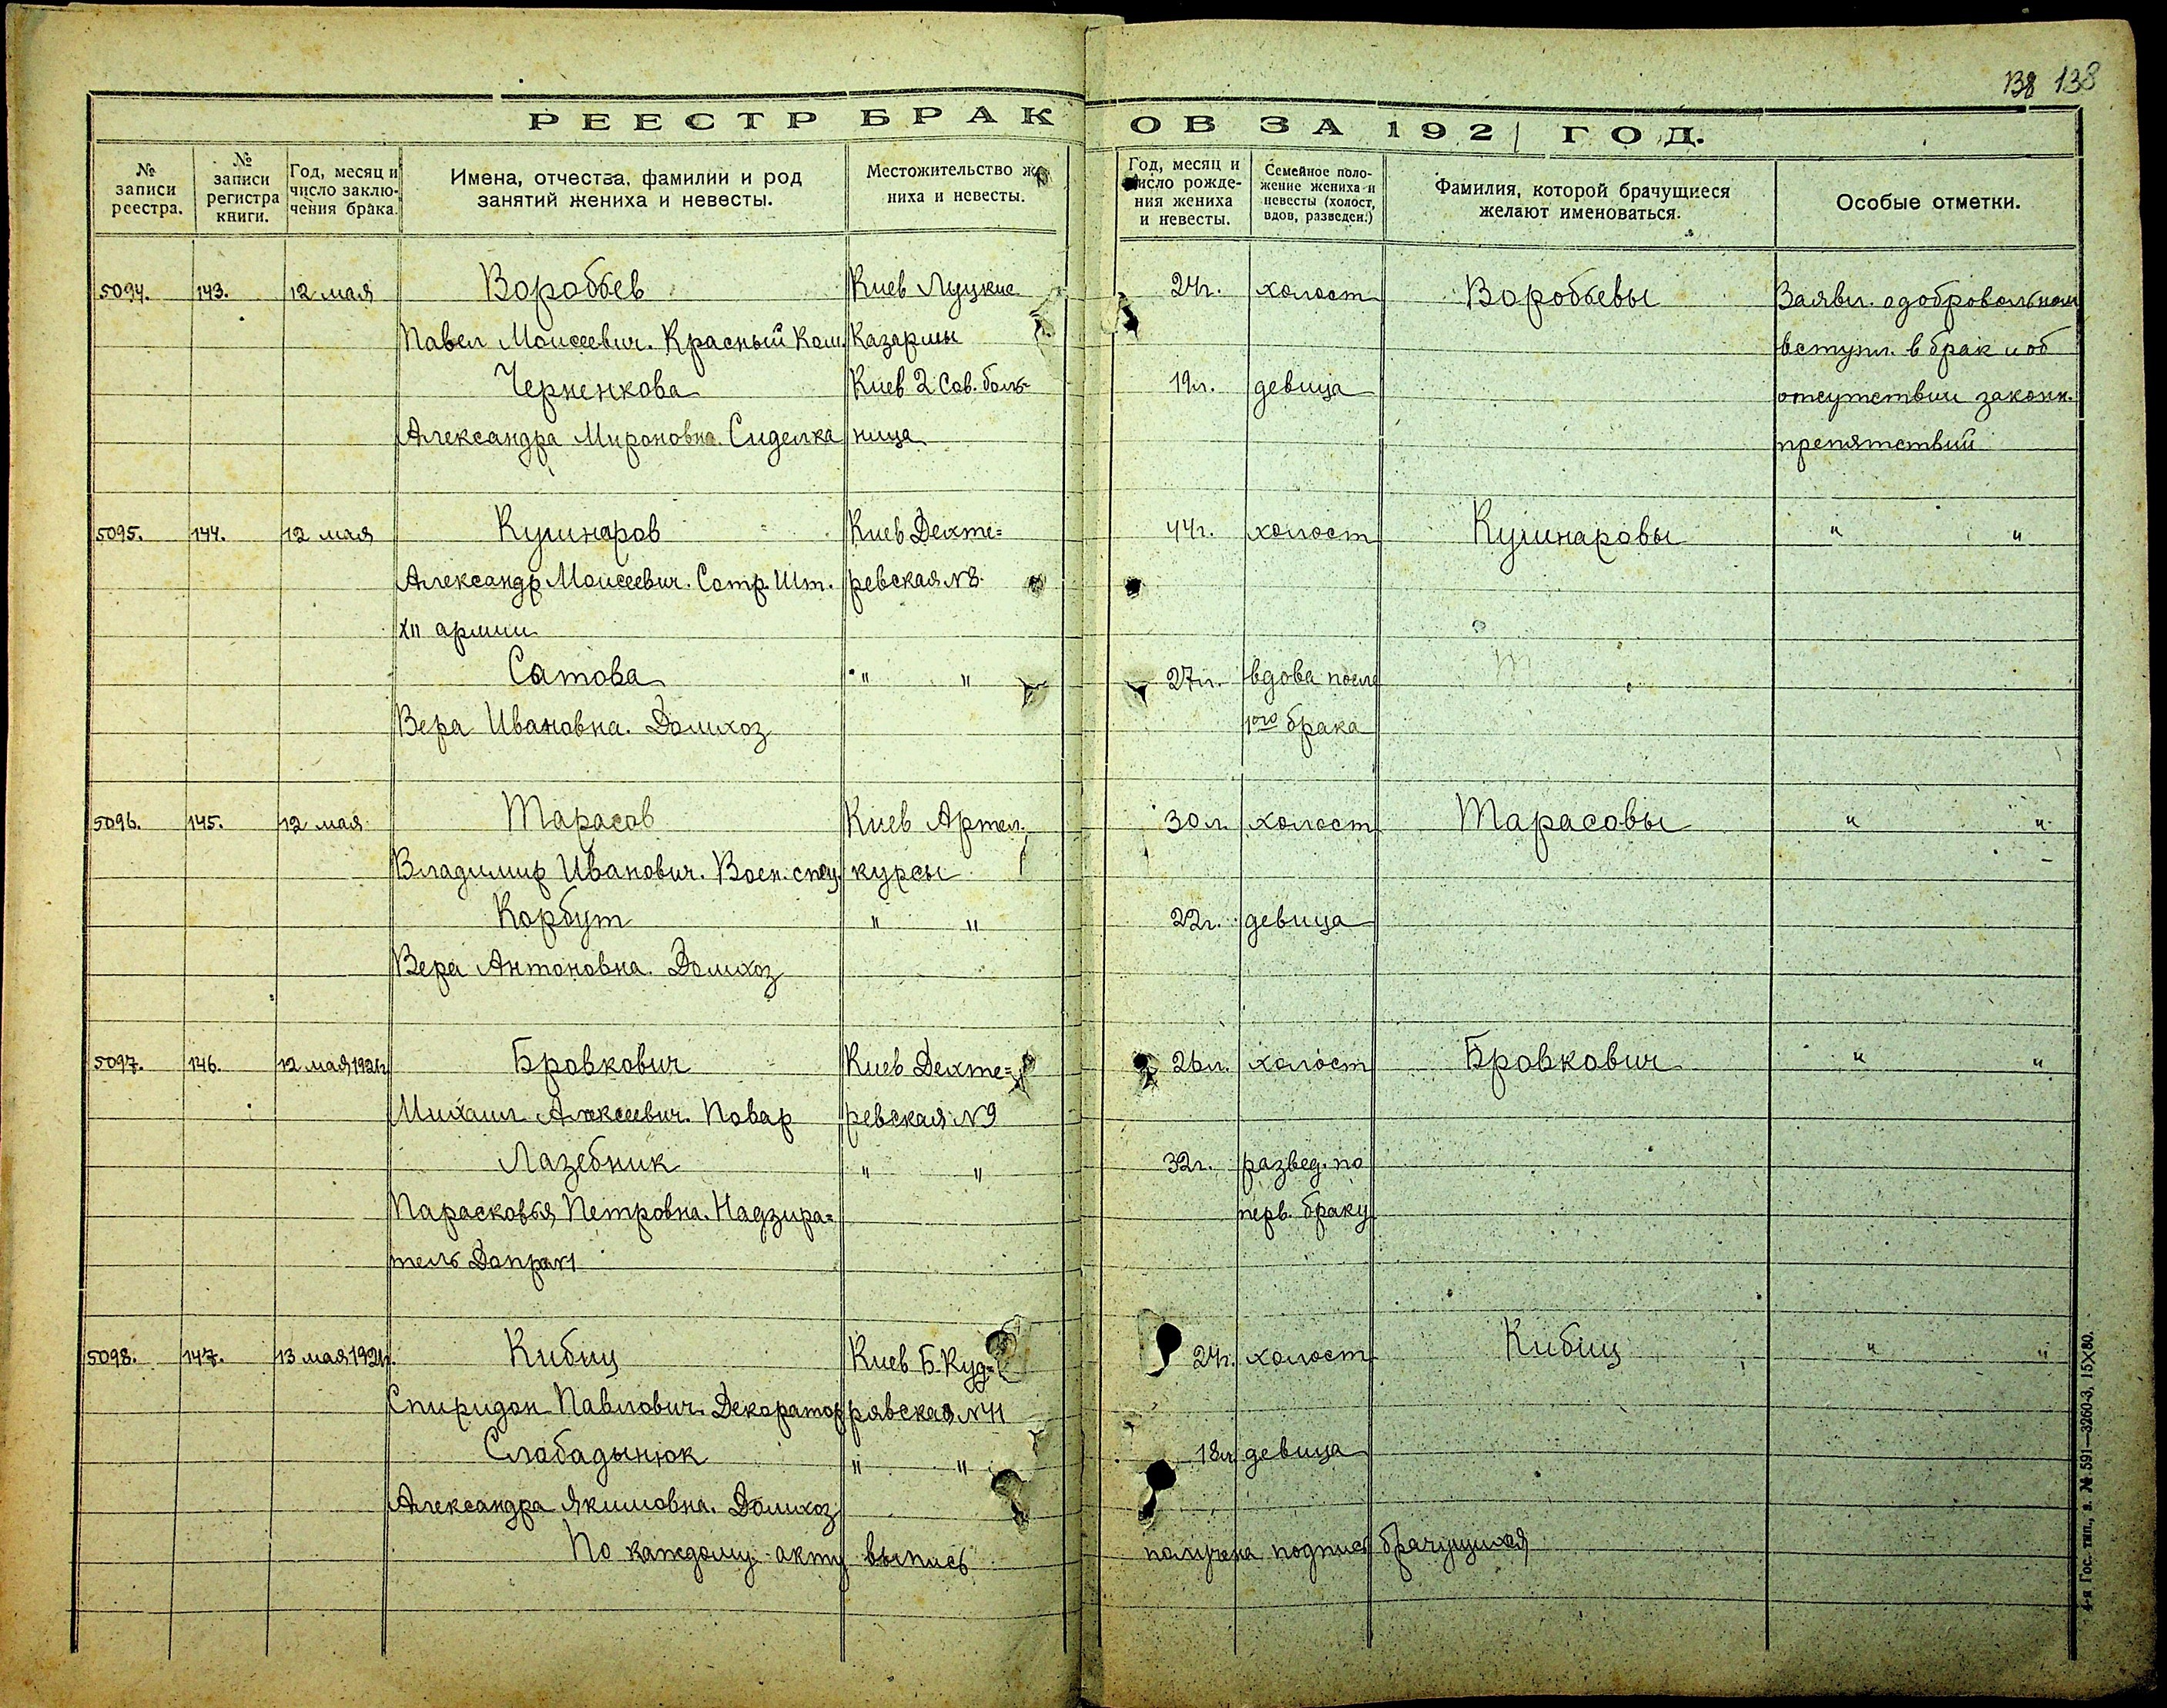 138 138
РЕЕСТР БРАКОВ ЗА 1921 ГОД.
№ записи реестра.
№ записи регистра книги.
Год, месяц и число заключения брака.
Имена, отчества, фамилии и род занятий жениха и невесты.
Местожительство жениха и невесты.
Год, месяц и число рождения жениха и невесты.
Семейное положение жениха и невесты (холост, вдов, разведен.)
Фамилия, которой брачущиеся желают именоваться.
Особые отметки.
5094. 143. 12 мая Воробьев Киев Луцкие 24г. холост Воробьевы Заявл. о добровольном
Павел Моисеевич. Красный Ком. Казармы вступл. в брак и об
Черненкова Киев 2 Сов. боль- 19л. девица отсутствии законн.
Александра Мироновна. Сиделка ница препятствий
5095. 144. 12 мая Кушнаров Киев Дехте= 44г. холост Кушнаровы " "
Александр Моисеевич. Сотр. Шт. ревская №8.
XII армии
Сатова " " 27л. вдова после
Вера Ивановна. Домхоз 1ого брака
5096. 145. 12 мая Тарасов Киев Артил. 30л. холост Тарасовы " "
Владимир Иванович. Воен. спец. курсы
Корбут " " 22г. девица
Вера Антоновна. Домхоз
5097. 146. 12 мая 1921г. Бровкович Киев Дехте= 26л. холост Бровкович " "
Михаил Алексеевич. Повар ревская №9
Лазебник " " 32г. развед. по
Парасковья Петровна. Надзира= перв. браку
тель Допра №1
5098. 147. 13 мая 1921г. Кибиц Киев Б. Куд= 24г. холост Кибиц " "
Спиридон Павлович. Декоратор рявская №41
Слабадынюк " " 18л. девица
Александра Якимовна. Домхоз
По каждому акту выпись получена подписи брачущихся
4-я Гос. тип., з. № 591—3260-3. 15×80.